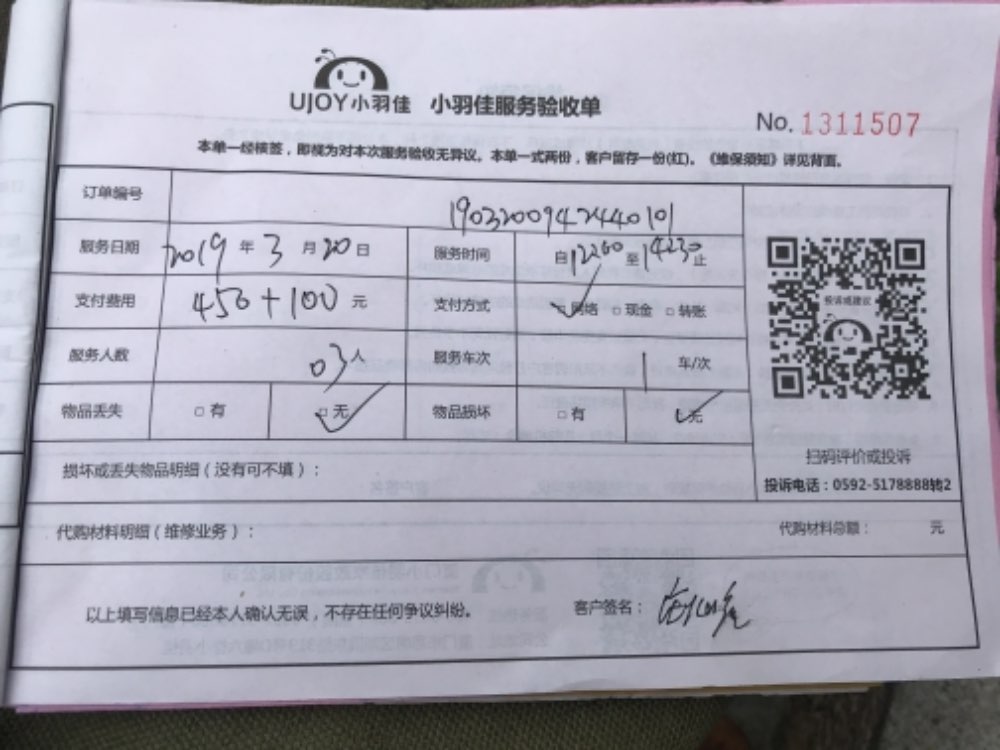 UJOY小羽佳 小羽佳服务验收单
No. 1311507
本单一经核签，即视为对本次服务验收无异议。本单一式两份，客户留存一份(红)。《维保须知》详见背面。
订单编号 19032009424440101
服务日期 2019 年 3 月 20 日 服务时间 自 至 14230 止
支付费用 450+100 元 支付方式 网络 □现金 □转账
服务人数 03人 服务车次 1 车/次
物品丢失 □有 □无 物品损坏 □有 无
投诉或建议
扫码评价或投诉
投诉电话：0592-5178888转2
损坏或丢失物品明细（没有可不填）：
代购材料明细（维修业务）： 代购材料总额： 元
以上填写信息已经本人确认无误，不存在任何争议纠纷。 客户签名：